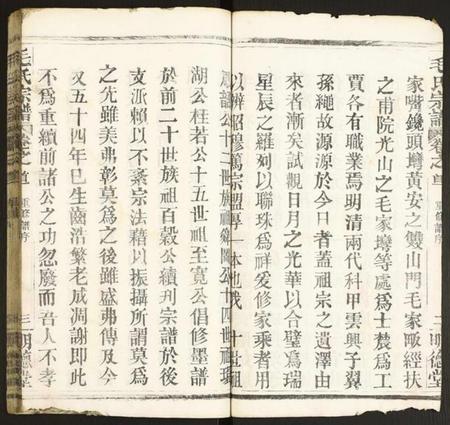 毛氏宗譜 卷之首 重修譜序 二 明德堂
家嘴鐃頭塆黄安之雙山門毛家畈經扶
之甫院光山之毛家塆等處爲士農爲工
賈各有職業焉明清兩代科甲雲興子翼
孫繩故源源於今日者蓋祖宗之遺澤由
來者漸矣試觀日月之光華以合璧爲瑞
星辰之羅列以聯珠爲祥愛修家乘者用
以辨昭穆萬宗盟專一本也我十世祖
公十二世族祖 公十四世祖
湖公柱若公十五世祖至寬公倡修墨譜
於前二十世族祖百穀公續刊宗譜於後
支派賴以不紊宗法藉以振攝所謂莫爲
之先雖美弗彰莫爲之後雖盛弗傳及今
又五十四年巳生齒浩繁老成凋謝即此
不爲重續前諸公之功忽廢而吾人不孝
毛氏宗譜 卷之首 重修譜序 三 明德堂